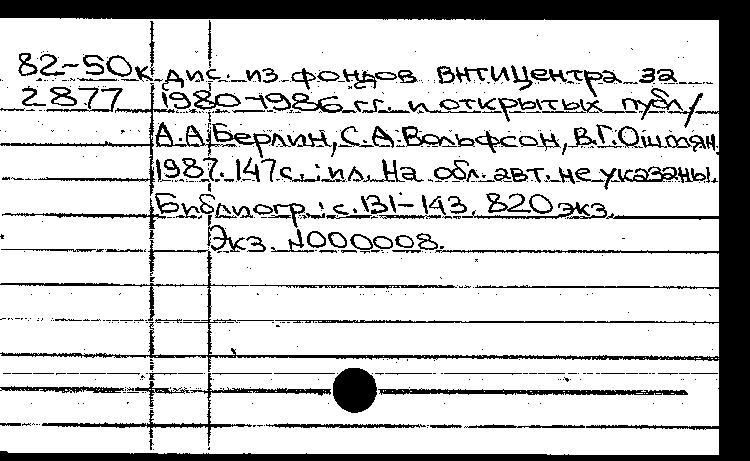 82-50к дис. из фондов ВНТИЦентра за
2877 1980-1986 гг. и открытых публ/
А.А.Берлин, С.А.Вольфсон, В.Г.Ошмян.
1987. 147с.: ил. На обл. авт. не указаны.
Библиогр.: с.131-143. 820 экз.
Экз. N000008.